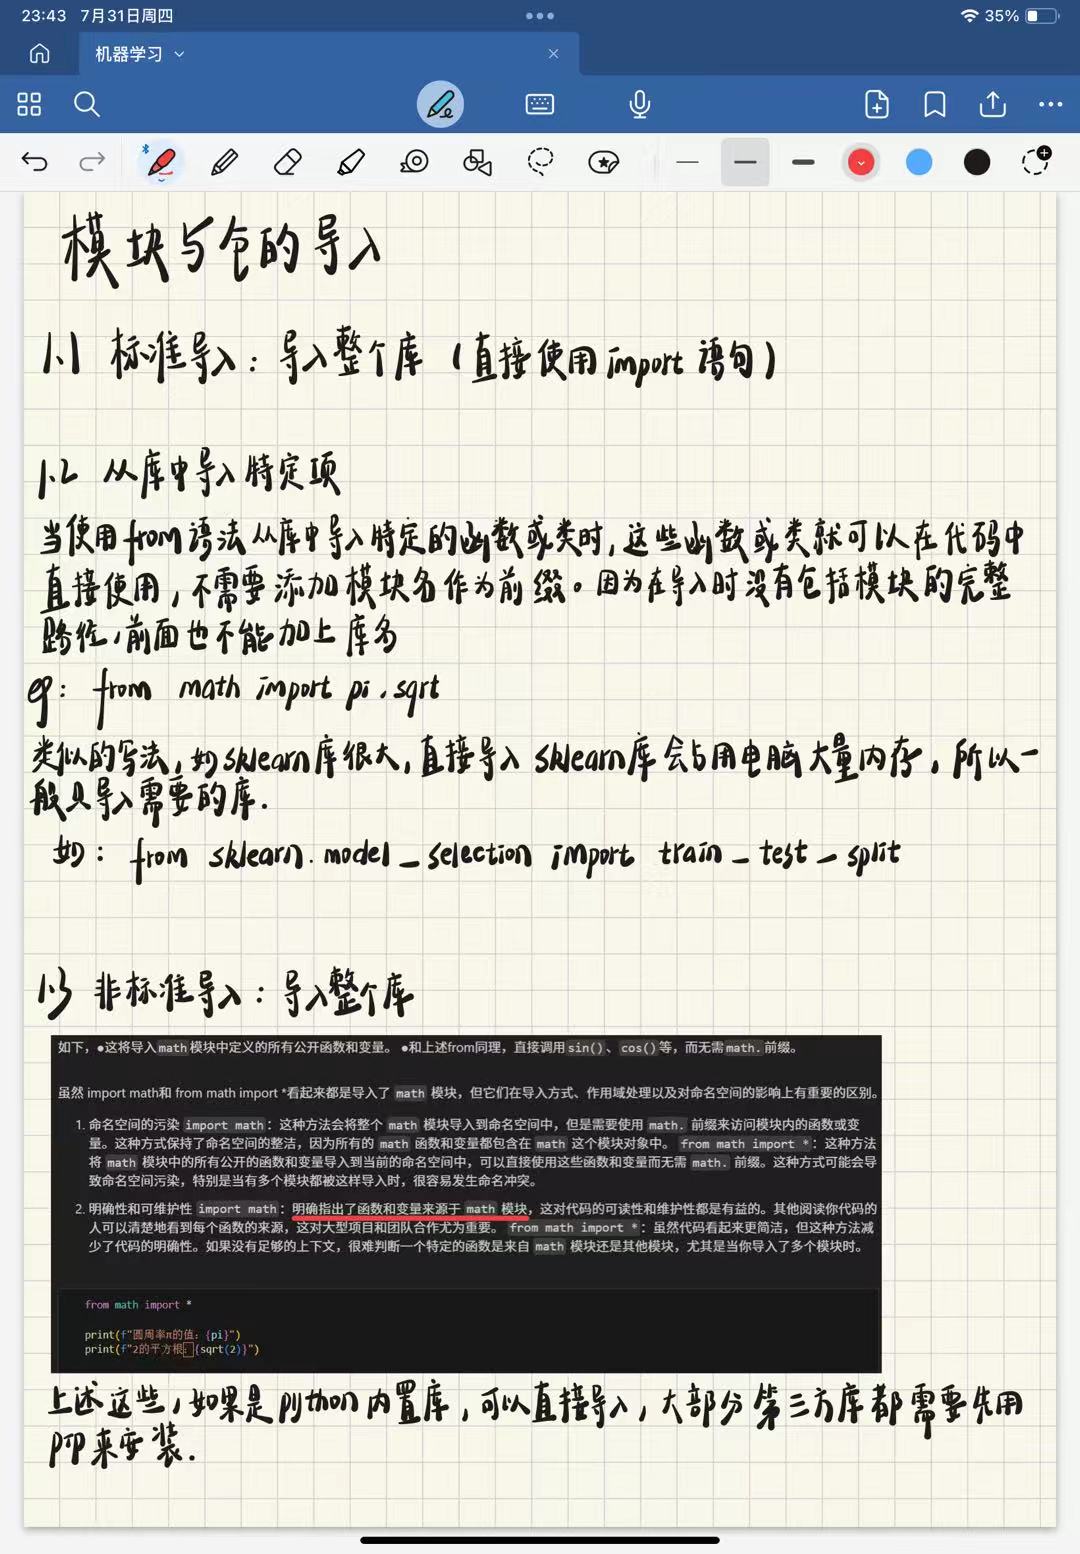 23:43 7月31日周四
35%
机器学习
模块与包的导入
1.1 标准导入：导入整个库（直接使用import语句）
1.2 从库中导入特定项
当使用from语法从库中导入特定的函数或类时，这些函数或类就可以在代码中
直接使用，不需要添加模块名作为前缀。因为在导入时没有包括模块的完整
路径，前面也不能加上库名
eg: from math import pi,sqrt
类似的写法，如sklearn库很大，直接导入sklearn库会占用电脑大量内存，所以一
般只导入需要的库.
如：from sklearn.model_selection import train_test_split
1.3 非标准导入：导入整个库
如下，●这将导入math模块中定义的所有公开函数和变量。 ●和上述from同理，直接调用sin()、cos()等，而无需math.前缀。
虽然 import math和 from math import *看起来都是导入了 math 模块，但它们在导入方式、作用域处理以及对命名空间的影响上有重要的区别。
1. 命名空间的污染 import math：这种方法会将整个 math 模块导入到命名空间中，但是需要使用 math. 前缀来访问模块内的函数或变
量。这种方式保持了命名空间的整洁，因为所有的 math 函数和变量都包含在 math 这个模块对象中。 from math import *：这种方法
将 math 模块中的所有公开的函数和变量导入到当前的命名空间中，可以直接使用这些函数和变量而无需 math. 前缀。这种方式可能会导
致命名空间污染，特别是当有多个模块都被这样导入时，很容易发生命名冲突。
2. 明确性和可维护性 import math：明确指出了函数和变量来源于 math 模块，这对代码的可读性和维护性都是有益的。其他阅读你代码的
人可以清楚地看到每个函数的来源，这对大型项目和团队合作尤为重要。 from math import *：虽然代码看起来更简洁，但这种方法减
少了代码的明确性。如果没有足够的上下文，很难判断一个特定的函数是来自 math 模块还是其他模块，尤其是当你导入了多个模块时。
from math import *
print(f"圆周率π的值：{pi}")
print(f"2的平方根：{sqrt(2)}")
上述这些，如果是python内置库，可以直接导入，大部分第三方库都需要先用
pip来安装.